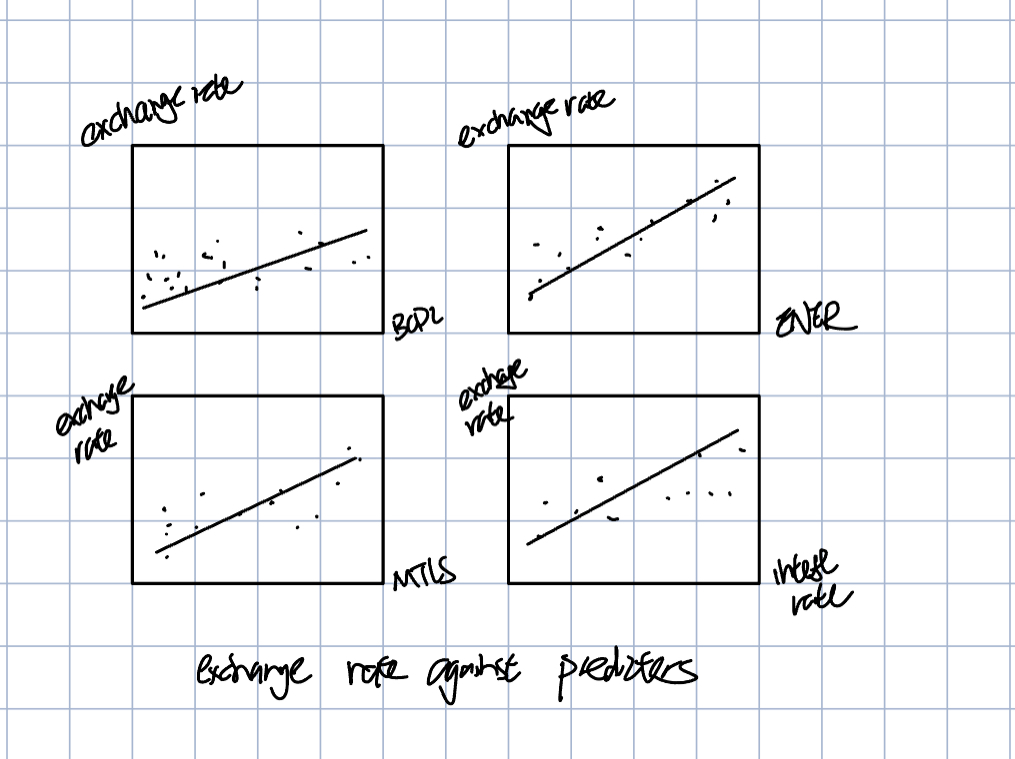 exchange rate
exchange rate
BCPI
ENER
exchange
rate
exchage
rate
MTLS
rate
exchange rate against predicters